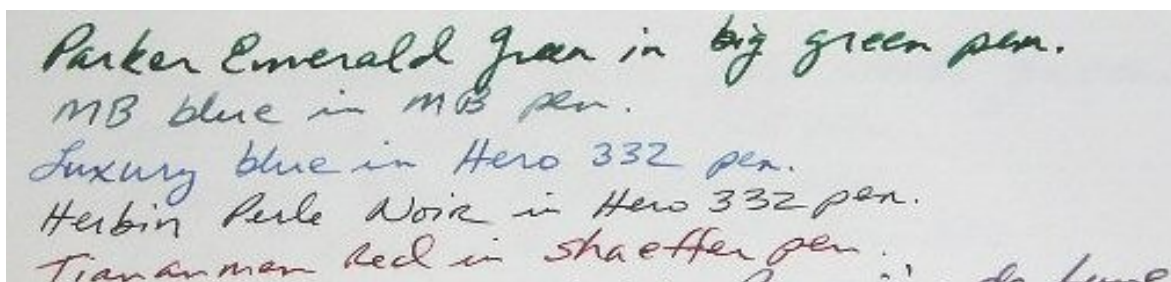 Parker Emerald Green in big green pen.
MB blue in MB pen.
Luxury blue in Hero 332 pen.
Herbin Perle Noir in Hero 332 pen.
Tiananmen Red in shaeffer pen.
de Lune